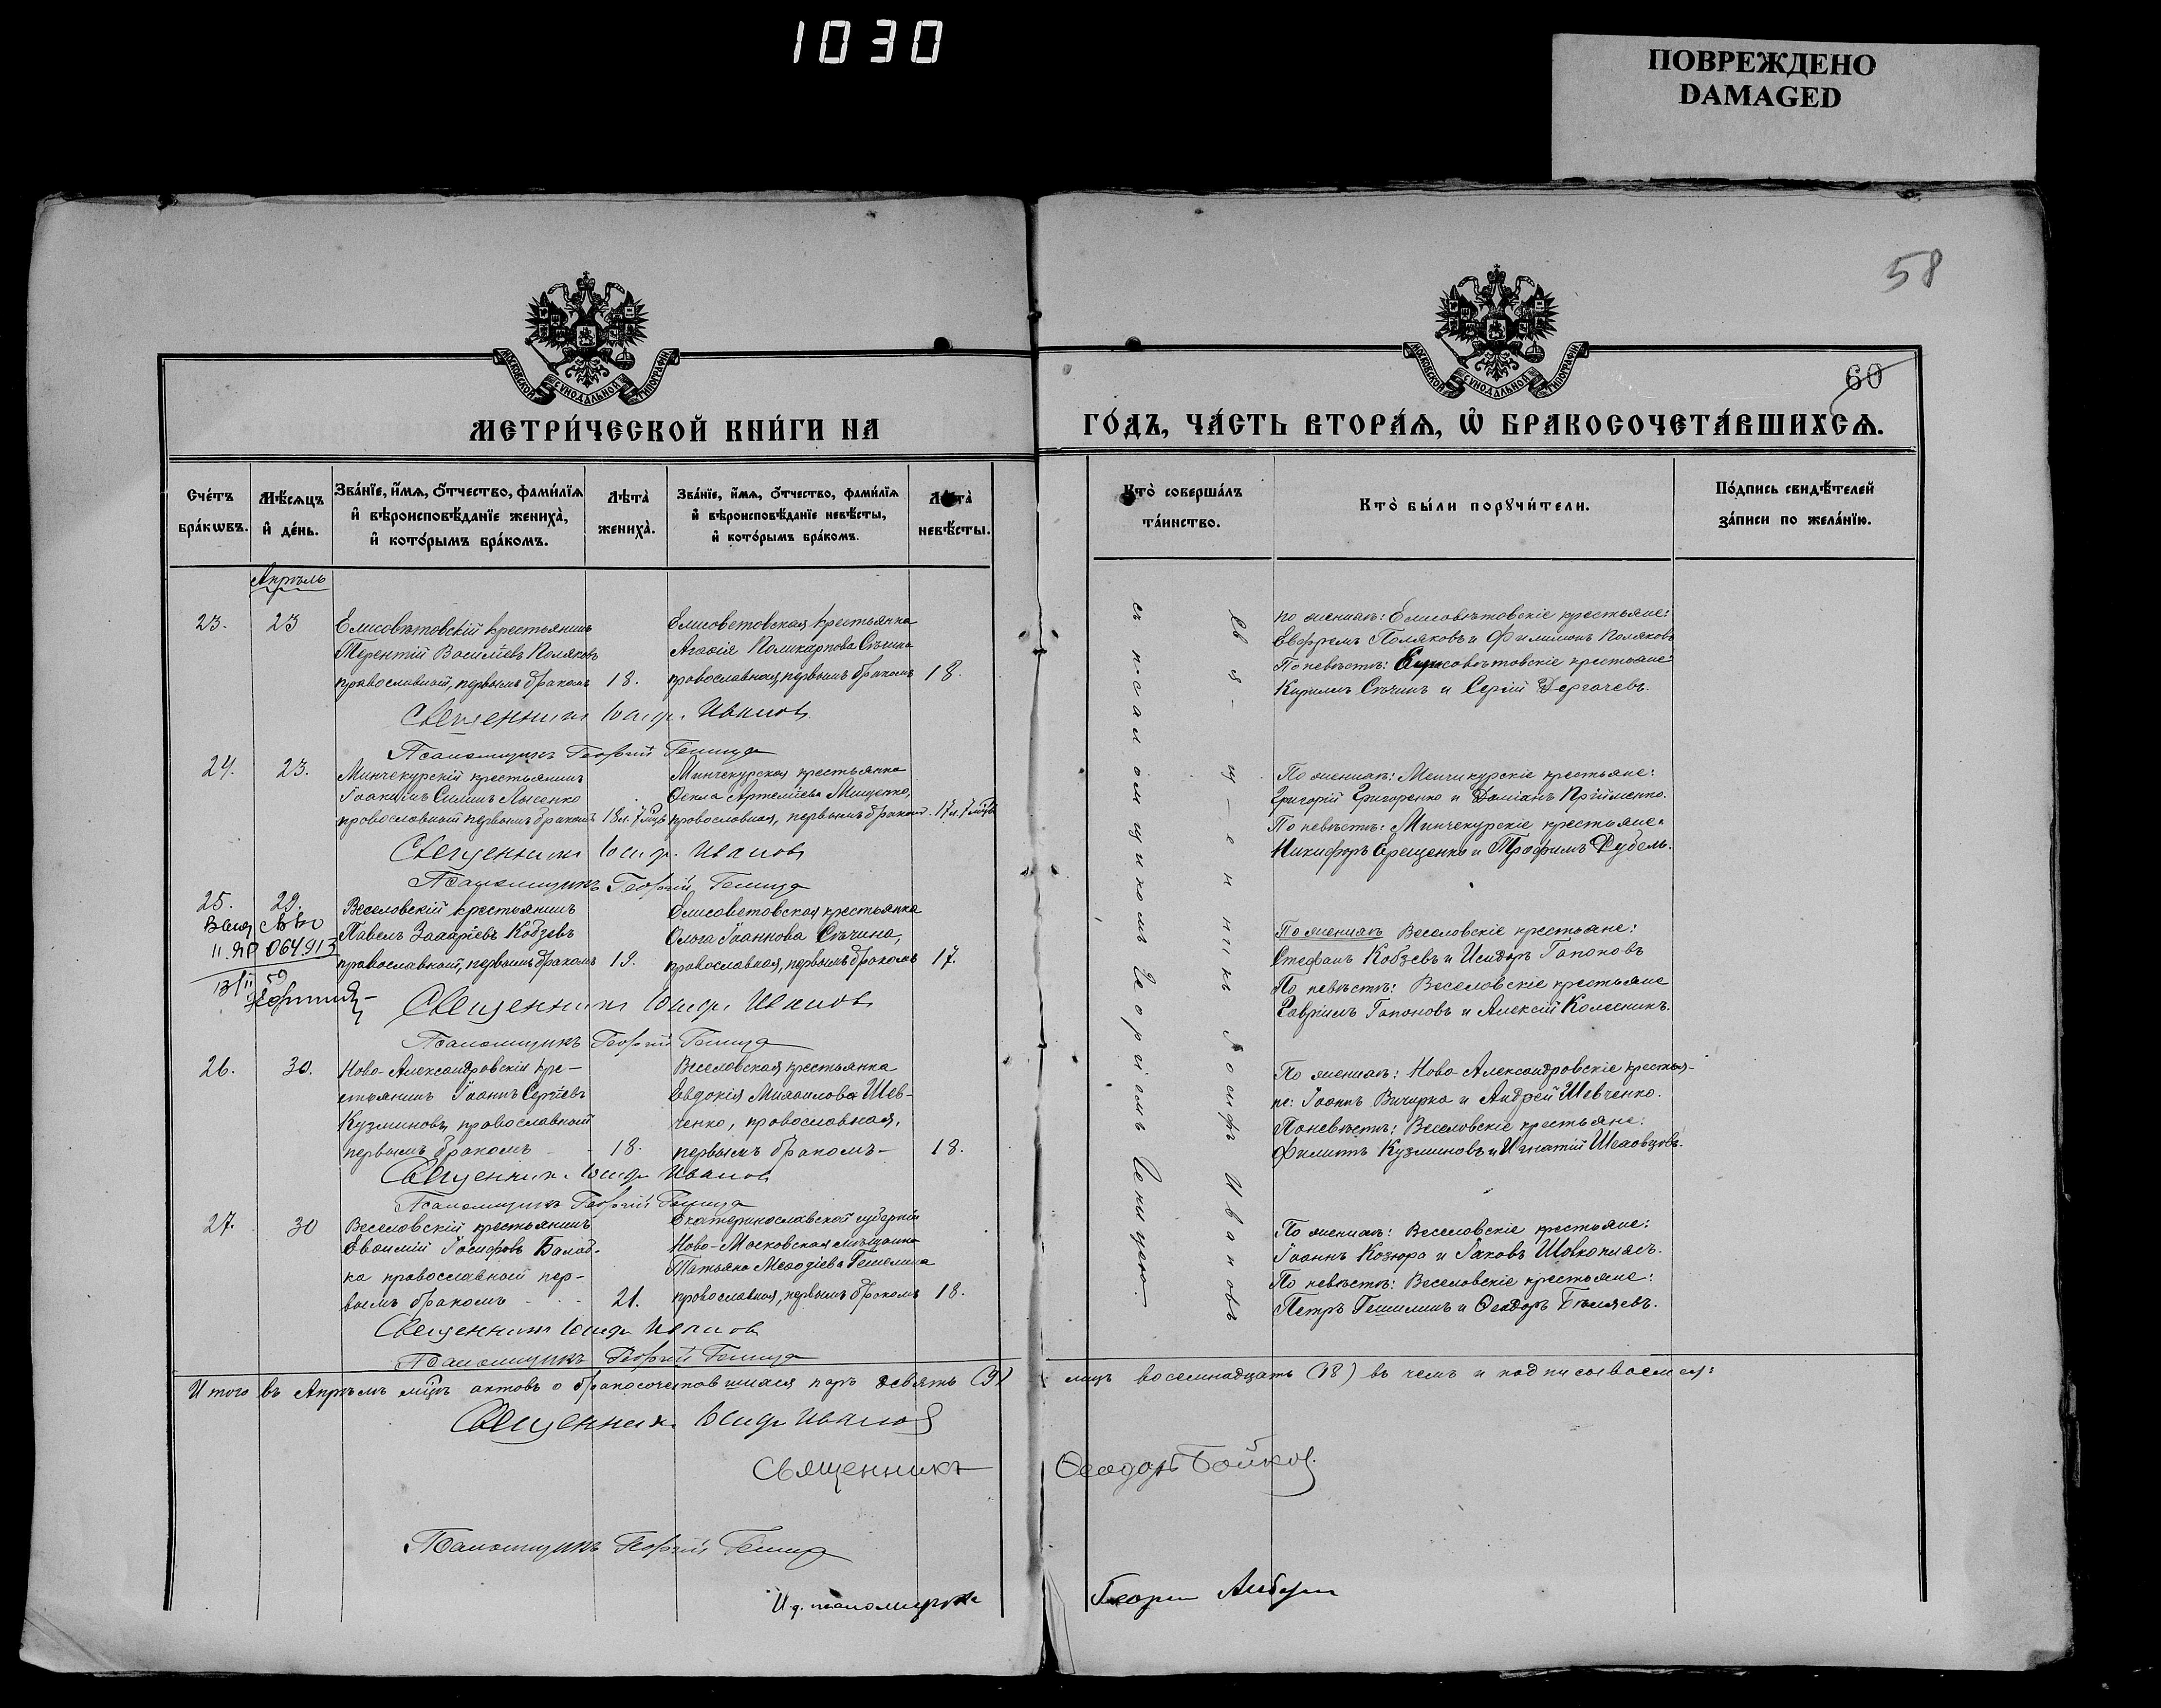 1030
ПОВРЕЖДЕНО
DAMAGED
58
МОСКОВСКОЙ СѴНОДАЛЬНОЙ ТИПОГРАФІИ
МОСКОВСКОЙ СѴНОДАЛЬНОЙ ТИПОГРАФІИ
60
МЕТРИ́ЧЕСКОЙ КНИ́ГИ НА
ГО́ДЪ, ЧА́СТЬ ВТОРА́Ѧ, Ѡ҆ БРАКОСОЧЕТА́ВШИХСѦ.
Сче́тъ бра́кѡвъ.
Мѣ́сѧцъ и҆ де́нь.
Зва́нїе, и҆́мѧ, ѻ҆́тчество, фами́лїѧ и҆ вѣроисповѣ́данїе жениха̀, и҆ кото́рымъ бра́комъ.
Лѣта̀ жениха̀.
Зва́нїе, и҆́мѧ, ѻ҆́тчество, фами́лїѧ и҆ вѣроисповѣ́данїе невѣ́сты, и҆ кото́рымъ бра́комъ.
Лѣта̀ невѣ́сты.
Кто̀ соверша́лъ та́инство.
Кто̀ бы́ли порꙋчи́тели.
По́дпись свидѣ́телей за́писи по жела́нїю.
Апрѣль
23.
23
Елисовѣтовскій крестьянинъ
Терентій Василіевъ Поляковъ
православный, первымъ бракомъ
18.
Елисоветовская крестьянка
Агаѳія Поликарпова Сѣчина
православная, первымъ бракомъ
18.
по женихѣ: Елисовѣтовскіе крестьяне:
Евфремъ Поляковъ и Филимонъ Поляковъ
По невѣстѣ: Елисовѣтовскіе крестьяне
Кириллъ Сѣчинъ и Сергій Дергачевъ.
Священникъ Іосиф. Иванов
Псаломщикъ Георгій
24.
23.
Минчекурскій крестьянинъ
Іоакимъ Силинъ Лысенко
православный первымъ бракомъ
18 л. 7 мцв
Минчекурская крестьянка
Ѳекла Артеміева Мищенко,
православная, первымъ бракомъ
17 л. 7 мцв
По женихѣ: Менчикурскіе крестьяне:
Григорій Григоренко и Даміанъ Прійменко.
По невѣстѣ: Минчекурскіе крестьяне:
Никифоръ Орещенко и Трофимъ Дубель.
Священникъ Іосиф. Иванов
Псаломщикъ Георгій
25.
29.
II ЯР 064913
13/II 59
Веселовскій крестьянинъ
Павелъ Захаріевъ Кобзевъ
православный, первымъ бракомъ
19.
Елисоветовская крестьянка
Ольга Іоаннова Сѣчина,
православная, первымъ бракомъ
17.
По женихѣ Веселовскіе крестьяне:
Стефанъ Кобзевъ и Исидоръ Гапоновъ
По невѣстѣ: Веселовскіе крестьяне
Гавріилъ Гапоновъ и Алексій Колесникъ.
Священникъ Іосиф. Иванов
Псаломщикъ Георгій
26.
30.
Ново-Александровскій кре-
стьянинъ Іоаннъ Сергіевъ
Кузминовъ, православный
первымъ бракомъ
18.
Веселовская крестьянка
Евдокія Михаилова Шев-
ченко, православная,
первымъ бракомъ-
18.
По женихѣ: Ново Александровскіе крестья-
не: Іоаннъ Вичирка и Андрей Шевченко.
По невѣстѣ: Веселовскіе крестьяне:
Филиппъ Кузминовъ и Игнатій Шеховцовъ.
Священник. Іосиф. Иванов
Псаломщикъ Георгій
27.
30
Веселовскій крестьянинъ
Евѳимій Іосифовъ Балаб-
ка православный пер-
вымъ бракомъ
21.
Екатеринославской губерніи
Ново-Московская мѣщанка
Татьяна Меѳодіева Гешелина
православная, первымъ бракомъ
18.
По женихѣ: Веселовскіе крестьяне:
Іоаннъ Козюра и Іаковъ Шовкоплясъ.
По невѣстѣ: Веселовскіе крестьяне:
Петръ Гешилинъ и Ѳеодоръ Бѣляевъ.
Священникъ Іосиф. Иванов
Псаломщикъ Георгій
Священникъ Іосифъ Ивановъ
съ псаломщикомъ Георгіемъ
Итого въ Апрѣлѣ мцѣ актовъ о бракосочетавшихся паръ девять (9) лицъ восемнадцать (18) въ чемъ и подписываемся:
Священник. Іосиф. Иванов
Священникъ Ѳеодоръ Бойков.
Псаломщикъ Георгій
И. д. псаломщика Георгій